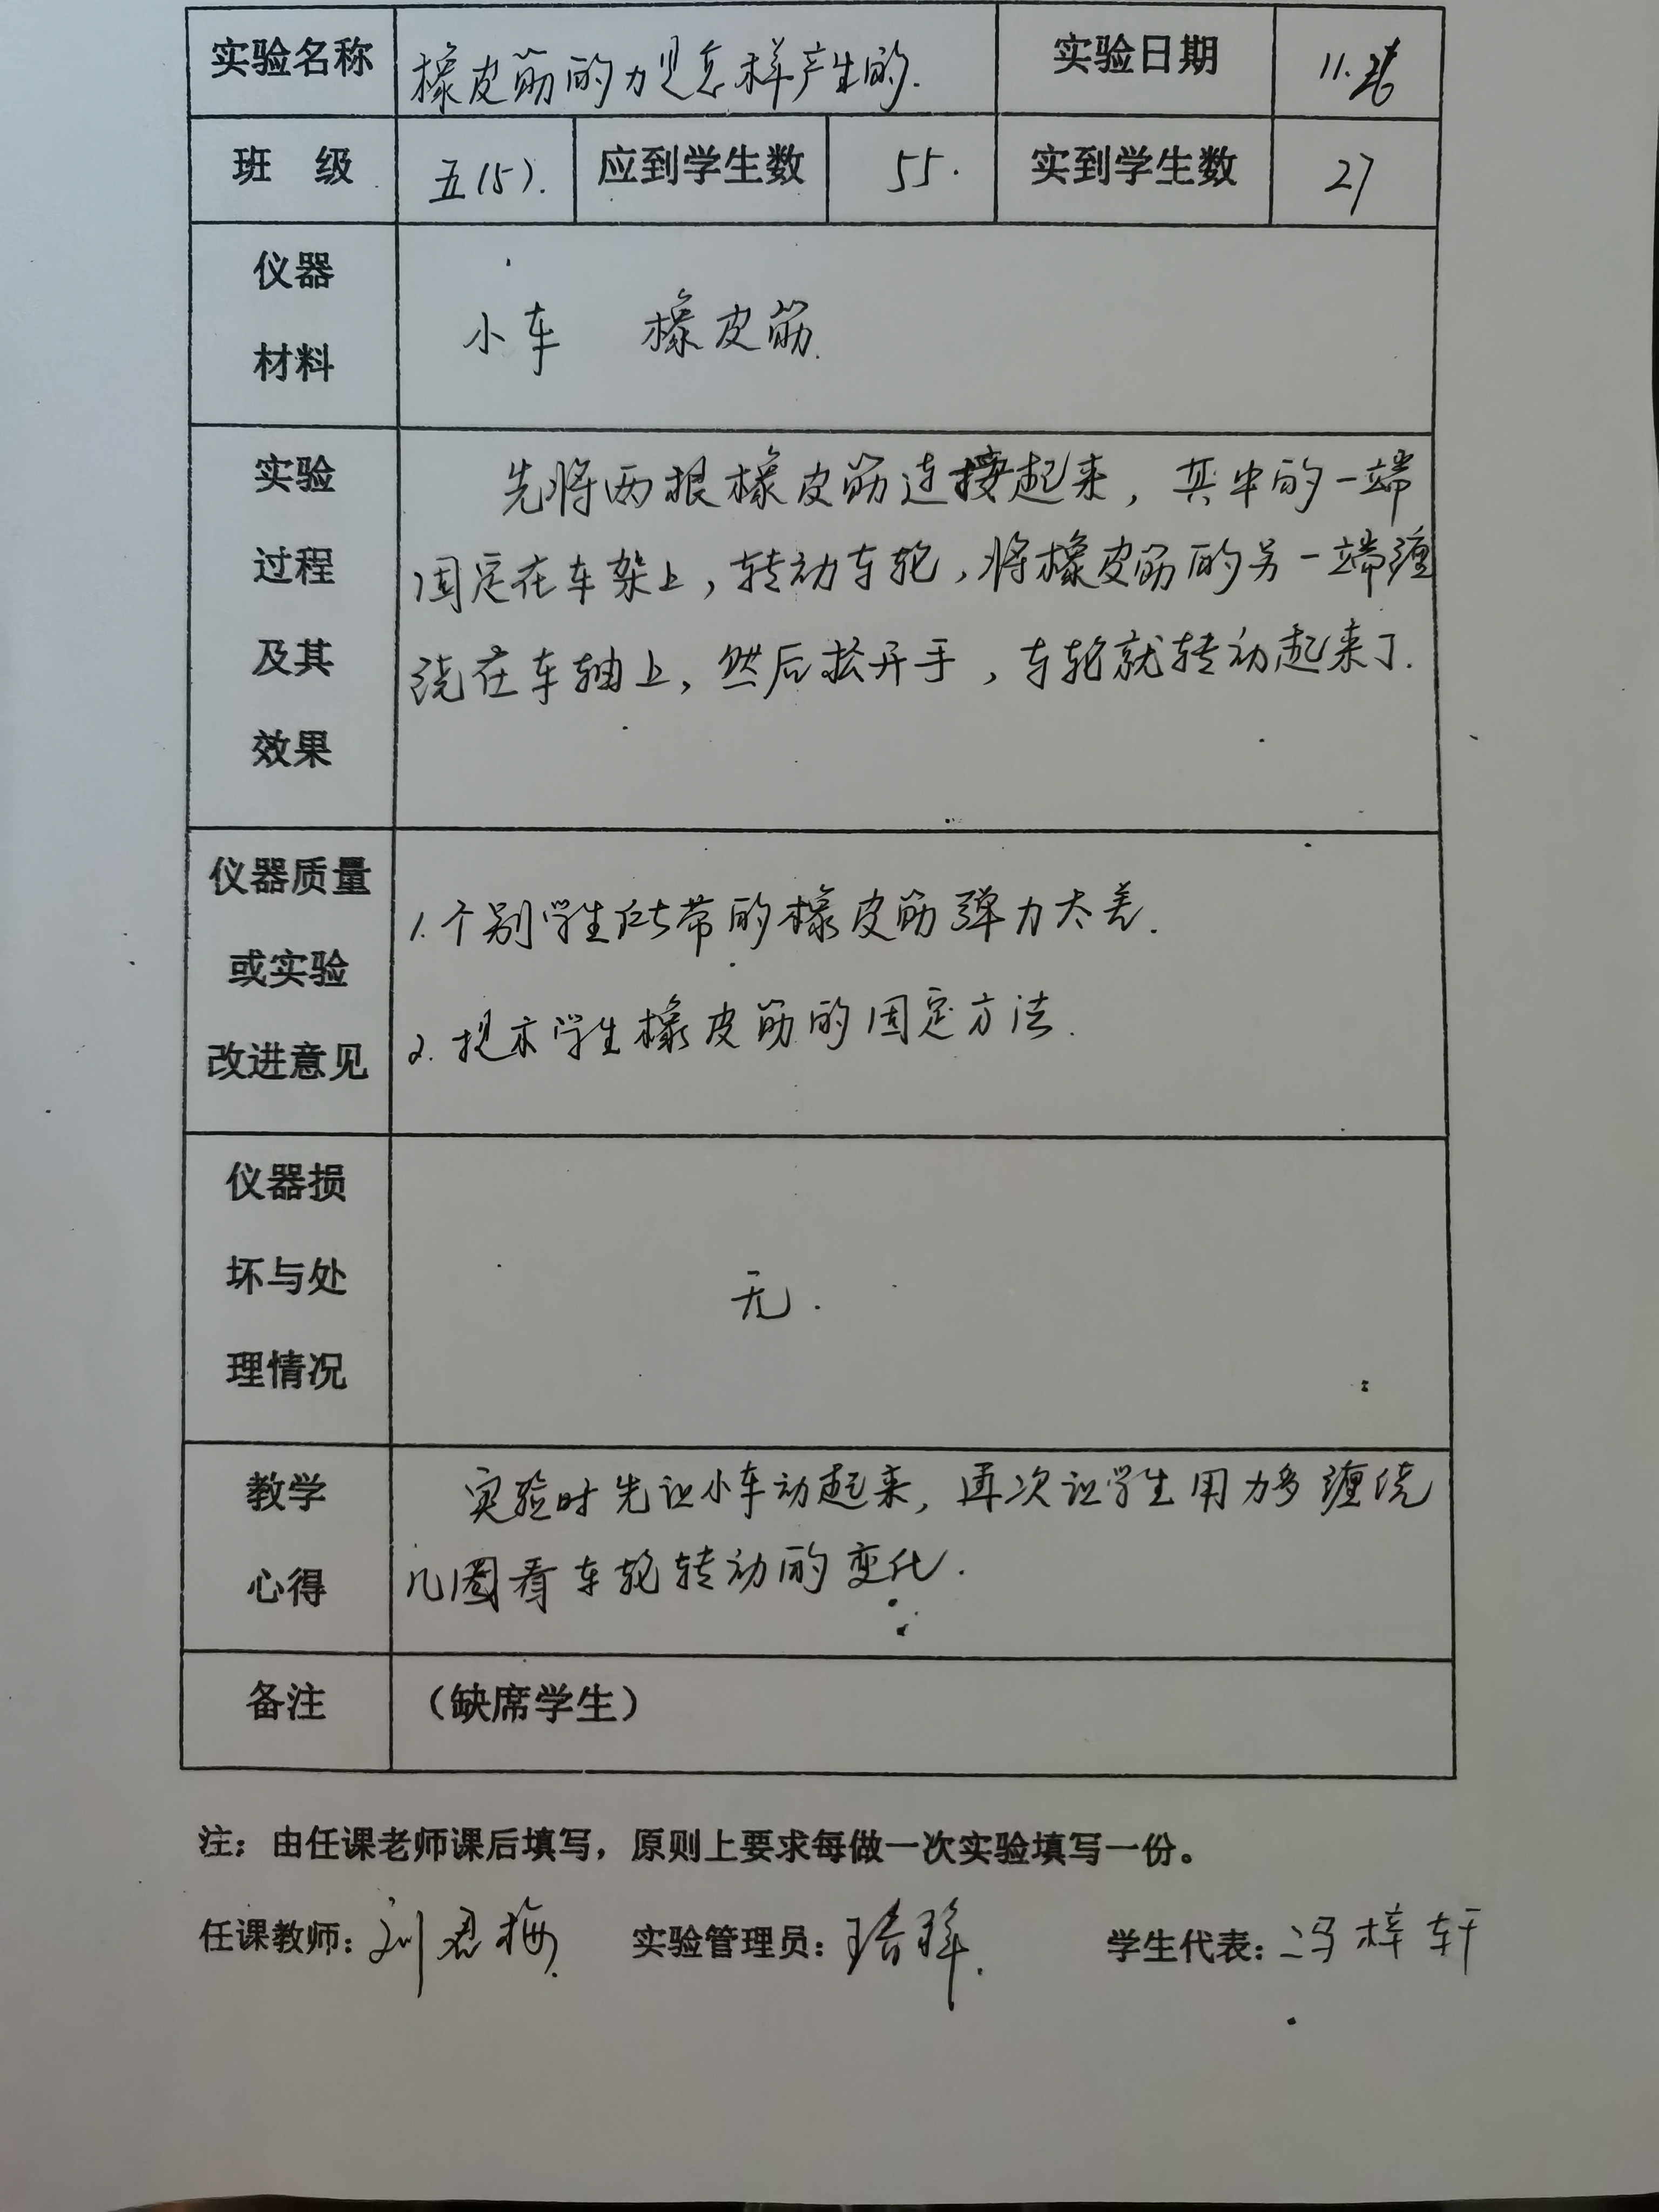 实验名称 橡皮筋的力是怎样产生的. 实验日期 11.
班 级 五(5). 应到学生数 55. 实到学生数 27
仪器
材料
小车 橡皮筋.
实验
过程
及其
效果
先将两根橡皮筋连接起来，其中的一端
固定在车架上，转动车轮，将橡皮筋的另一端缠
绕在车轴上，然后松开手，车轮就转动起来了.
仪器质量
或实验
改进意见
1.个别学生所带的橡皮筋弹力太差.
2.提示学生橡皮筋的固定方法.
仪器损
坏与处
理情况
无.
教学
心得
实验时先让小车动起来，再次让学生用力多缠绕
几圈看车轮转动的变化.
备注 （缺席学生）
注：由任课老师课后填写，原则上要求每做一次实验填写一份。
任课教师：刘君梅 实验管理员： 学生代表：冯梓轩